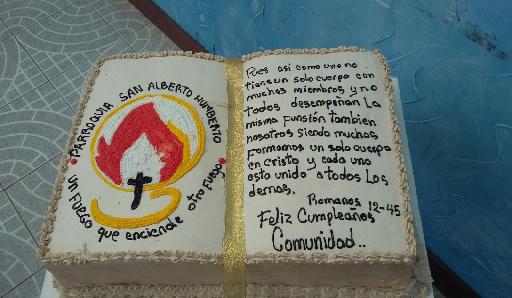 PARROQUIA SAN ALBERTO HUMBERTO
UN FUEGO que enciende otro fuego
Pues así como uno no
tiene un solo cuerpo con
muchos miembros, y no
todos desempeñan La
misma funsión tambien
nosotros siendo muchos
Formamos un solo cuerpo
en cristo y cada uno
esta unido a todos Los
demas.
Romanos 12-45
Feliz Cumpleaños
Comunidad..